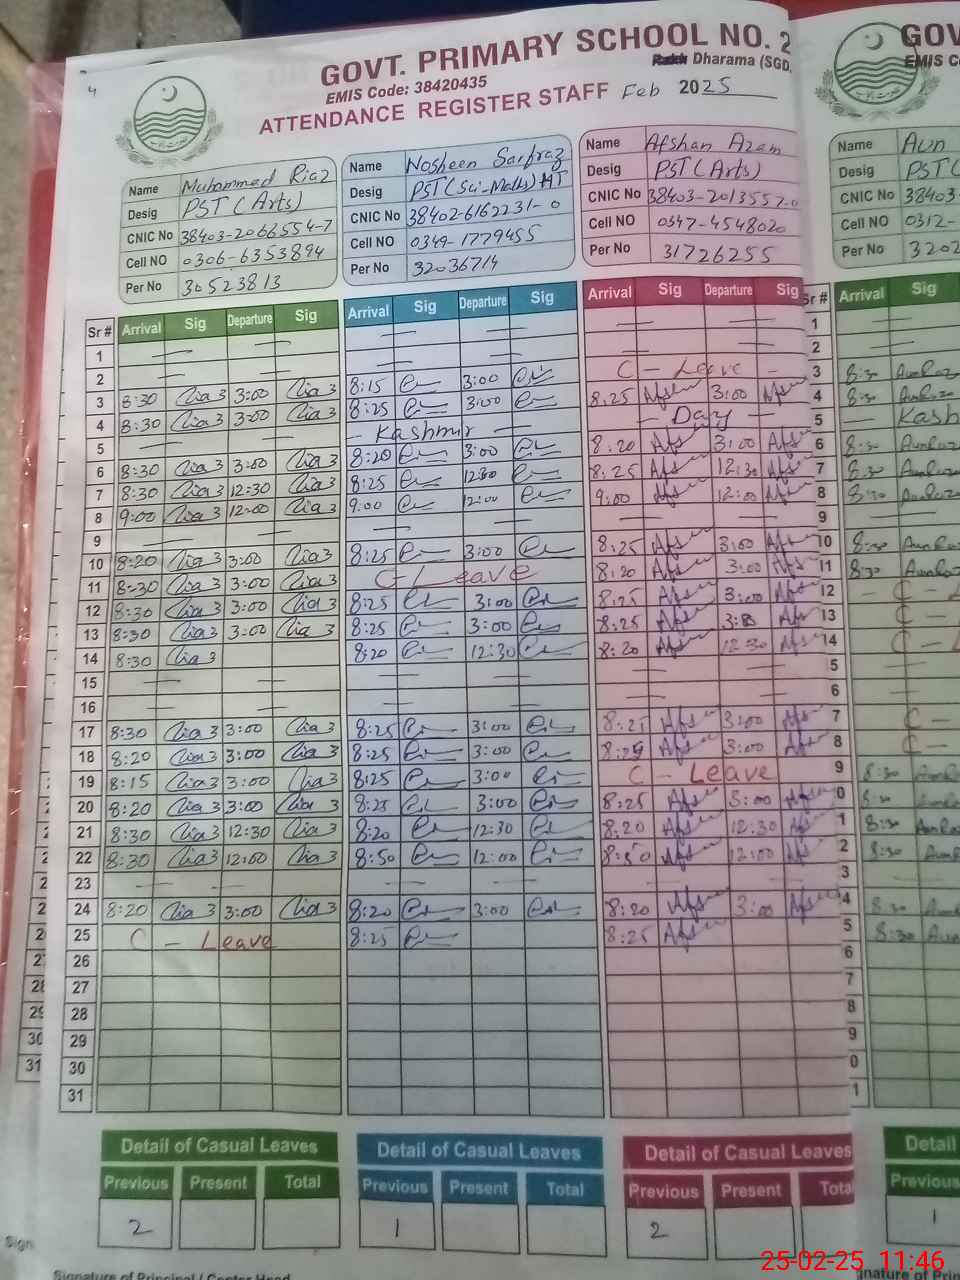 GOVT. PRIMARY SCHOOL NO. 2
EMIS Code: 38420435 Dharama (SGD.
ATTENDANCE REGISTER STAFF Feb 2025
Name Muhammad Riaz
Desig PST (Arts)
CNIC No 38403-2066554-7
Cell NO 0306-6353894
Per No 30523813
Name Nosheen Sarfraz
Desig PST (Sci-Math) HT
CNIC No 38402-6162231-0
Cell NO 0349-1779455
Per No 32036714
Name Afshan Azam
Desig PST (Arts)
CNIC No 38403-2013557-0
Cell NO 0347-4548020
Per No 31726255
GOV
EMIS C
Name Aun
Desig PST (
CNIC No 38403-
Cell NO 0312-
Per No 3202
Sr # Arrival Sig Departure Sig Arrival Sig Departure Sig Arrival Sig Departure Sig Sr # Arrival Sig
1 — — — — — — 1
2 — — — — — — 2
3 8:30 3:00 8:15 3:00 C - Leave - 3 8:30
4 8:30 3:00 8:25 3:00 8:25 3:00 4 8:30
5 — — - Kashmir - - Day - 5 - Kash
6 8:30 3:00 8:20 3:00 8:20 3:00 6 8:30
7 8:30 12:30 8:25 12:30 8:25 12:30 7 8:30
8 9:00 12:00 9:00 12:00 9:00 12:00 8 8:30
9 — — — — — — 9
10 8:20 3:00 8:25 3:00 8:25 3:00 10 8:30
11 8:30 3:00 C Leave 8:20 3:00 11 8:30
12 8:30 3:00 8:25 3:00 8:25 3:00 12 - C - L
13 8:30 3:00 8:25 3:00 8:25 3:00 13 C -
14 8:30 8:20 12:30 8:20 12:30 14 C - L
15 — — — — — — 5
16 — — — — — — 6
17 8:30 3:00 8:25 3:00 8:25 3:00 7 C -
18 8:20 3:00 8:25 3:00 8:25 3:00 8 C -
19 8:15 3:00 8:25 3:00 C - Leave 9 8:30
20 8:20 3:00 8:25 3:00 8:25 3:00 0 8:30
21 8:30 12:30 8:20 12:30 8:20 12:30 1 8:30
22 8:30 12:00 8:50 12:00 8:50 12:00 2 8:30
23 — — — — — — 3
24 8:20 3:00 8:20 3:00 8:20 3:00 4 8:30
25 C - Leave 8:25 8:25 5 8:30
26 6
27 7
28 8
29 9
30 0
31 1
Detail of Casual Leaves Detail of Casual Leaves Detail of Casual Leaves Detail
Previous Present Total Previous Present Total Previous Present Total Previous
2 1 2 1
Sign
Signature of Principal / Center Head
25-02-25 11:46